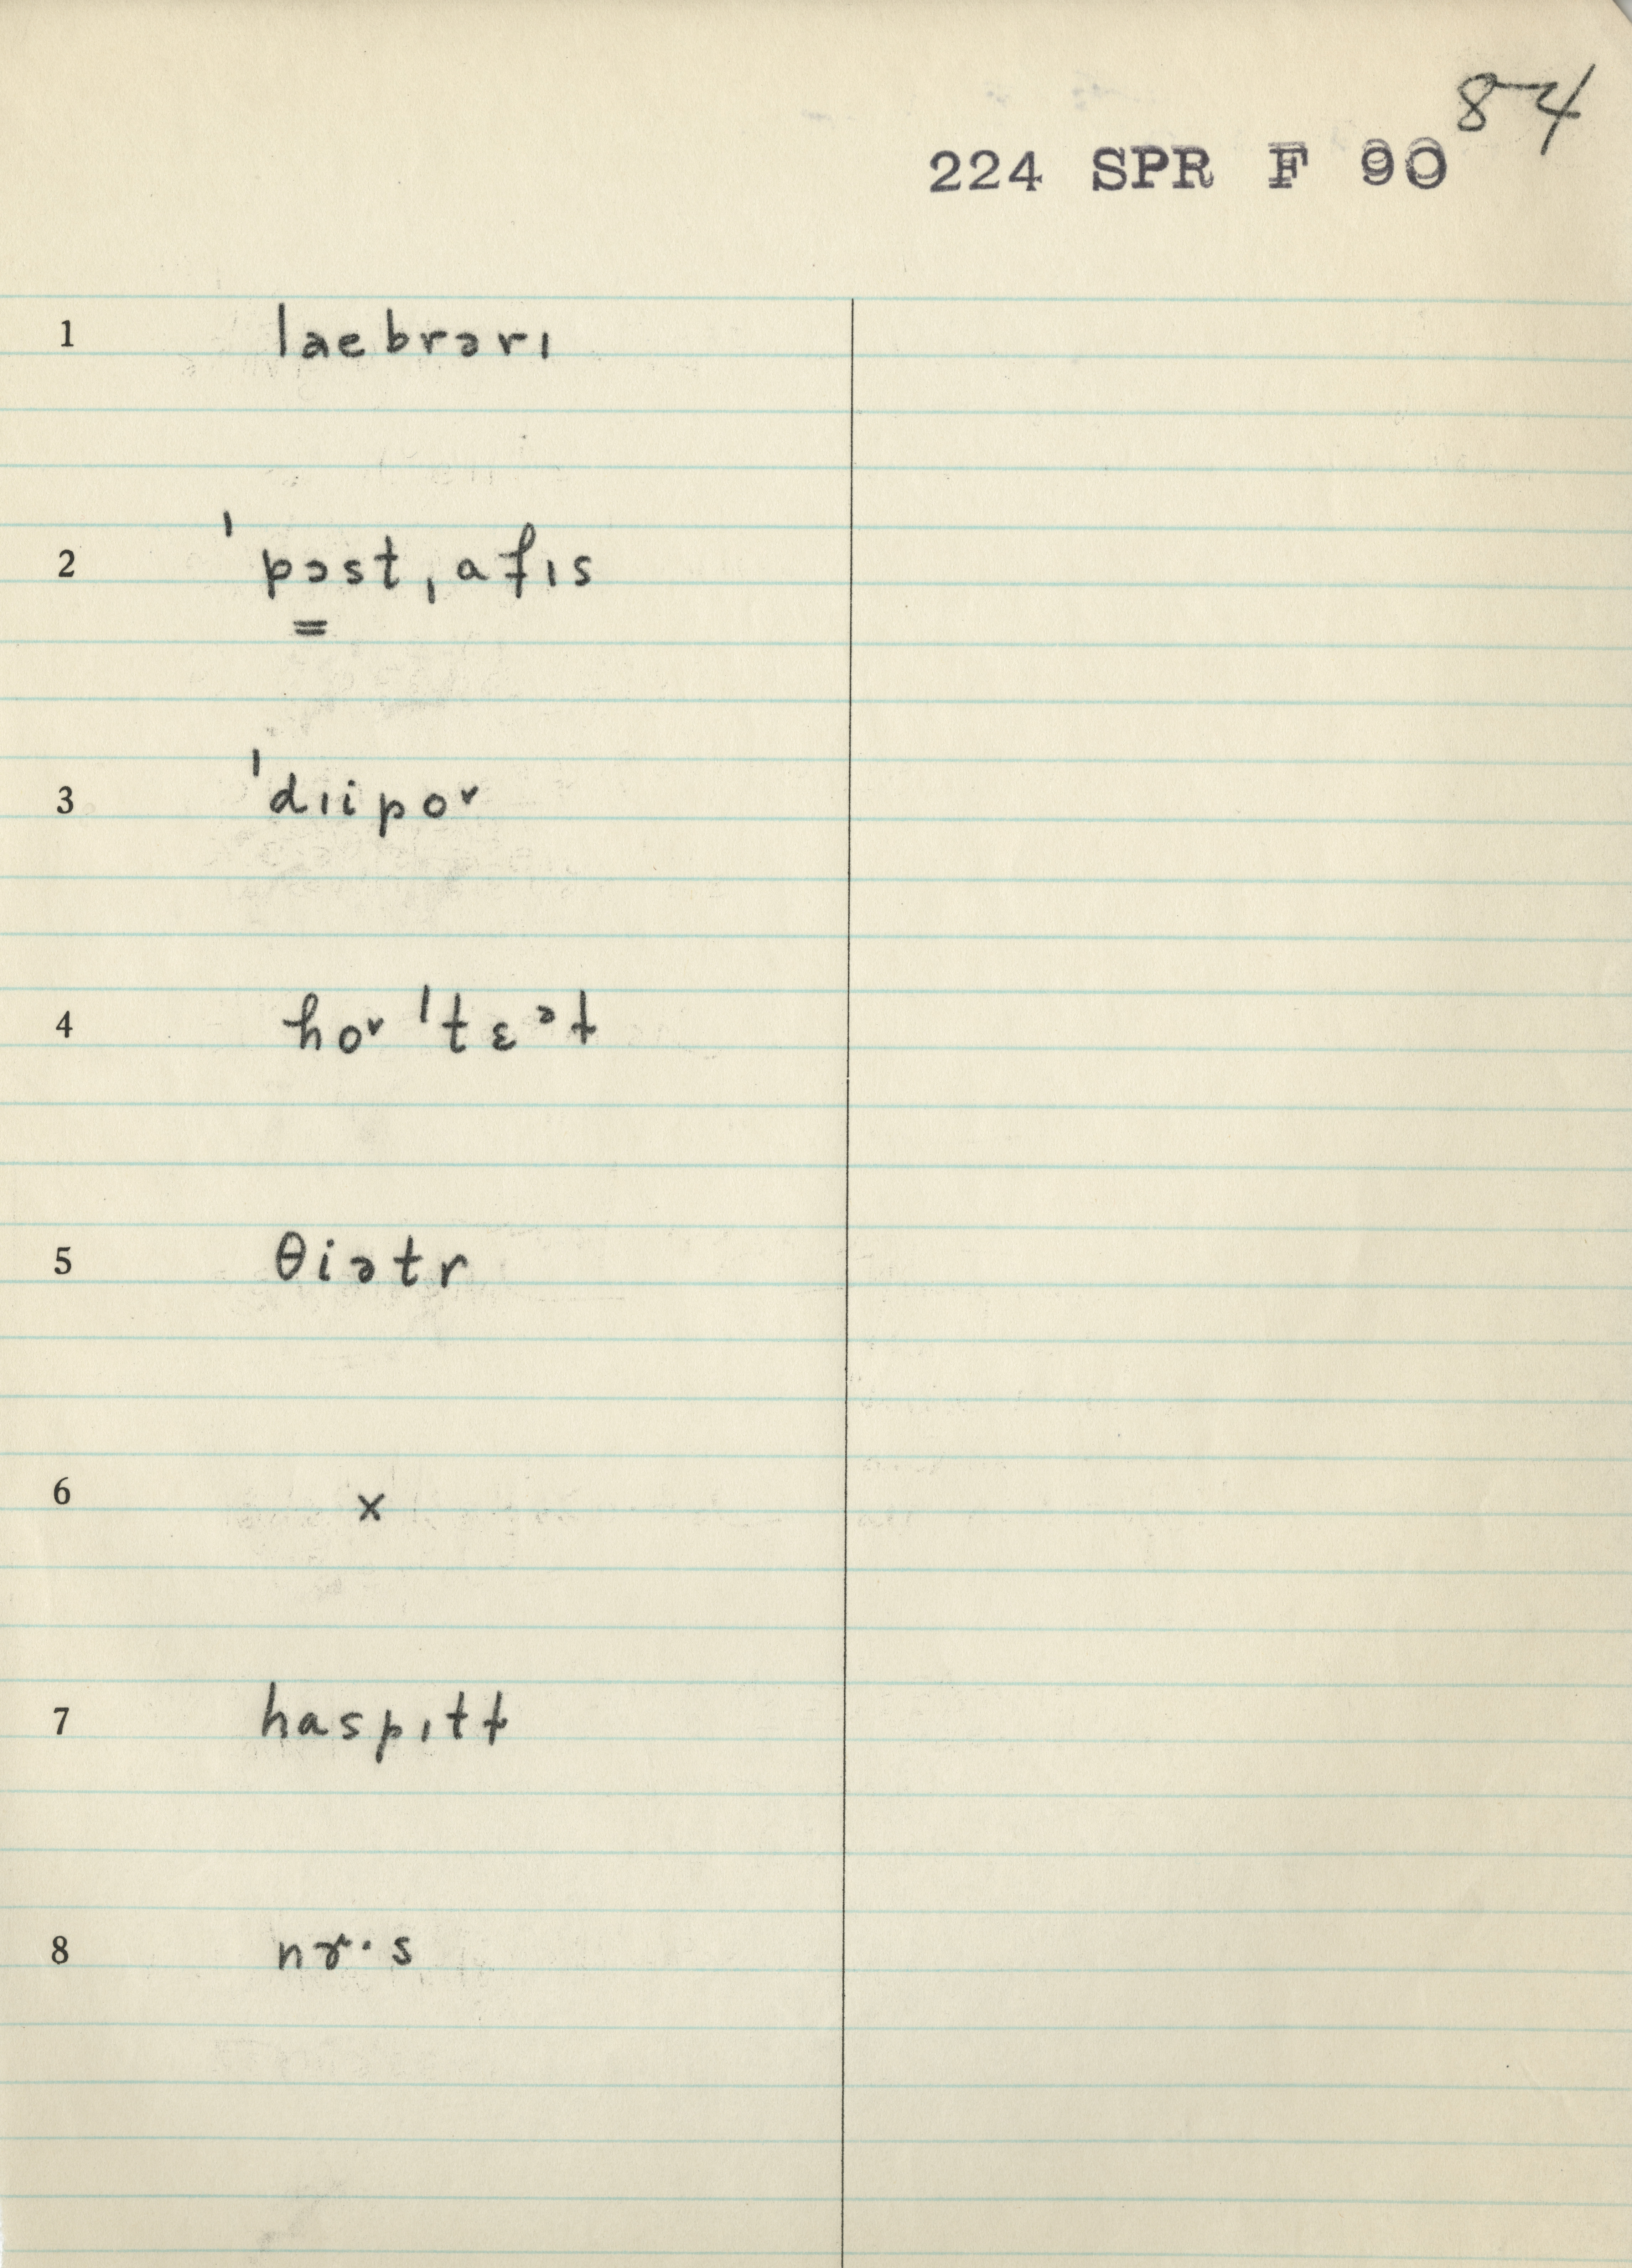 84
224 SPR F 90
1 laebrərɪ
2 ˈpɔst ˌafɪs
=
3 ˈdɪipoᵛ
4 hoᵛˈtɛᵊɫ
5 θiətr
6 x
7 haspɪtɫ
8 nɚ·s